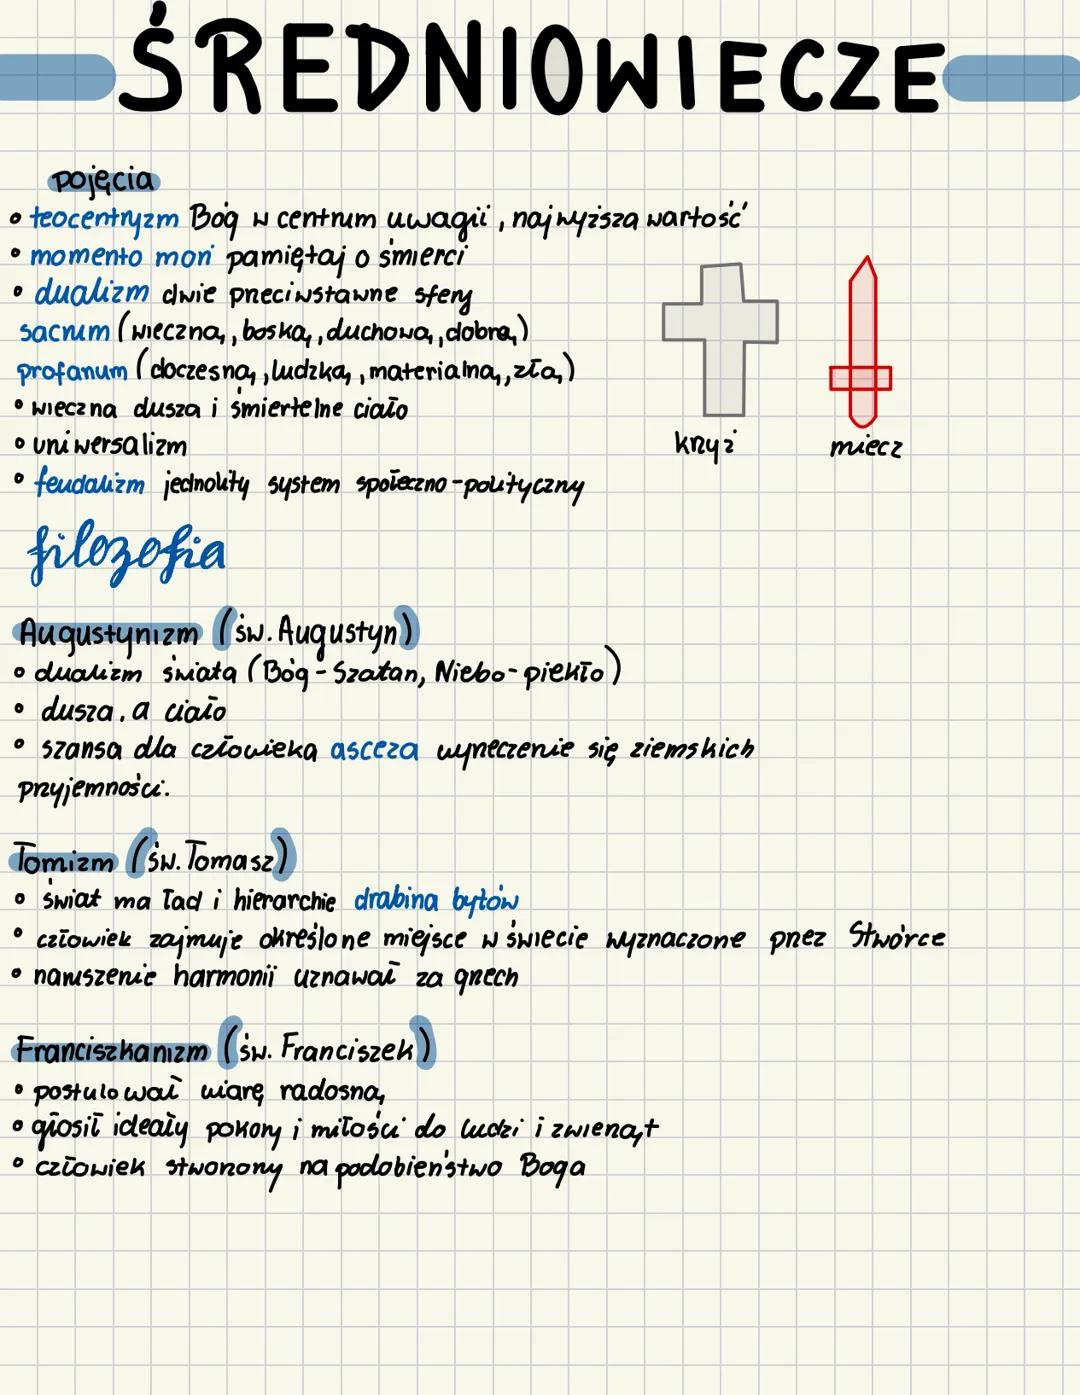 ŚREDNIOWIECZE
pojęcia
• teocentryzm Bóg w centrum uwagii, najwyższa wartość
• momento mori pamiętaj o śmierci
• dualizm dwie przeciwstawne sfery
sacrum (wieczną, boską, duchową, dobrą)
profanum (doczesną, ludzką, materialną, złą)
• wieczna dusza i śmiertelne ciało
• uniwersalizm
• feudalizm jednolity system społeczno-polityczny
krzyż
miecz
filozofia
Augustynizm (św. Augustyn)
• dualizm świata (Bóg-Szatan, Niebo-piekło)
• dusza, a ciało
• szansa dla człowieka asceza wyrzeczenie się ziemskich
przyjemności.
Tomizm (św. Tomasz)
• świat ma ład i hierarchie drabina bytów
• człowiek zajmuje określone miejsce w świecie wyznaczone przez Stwórce
• naruszenie harmonii uznawał za grzech
Franciszkanizm (św. Franciszek)
• postulował wiarę radosną
• głosił ideały pokory i miłości do ludzi i zwierząt
• człowiek stworzony na podobieństwo Boga